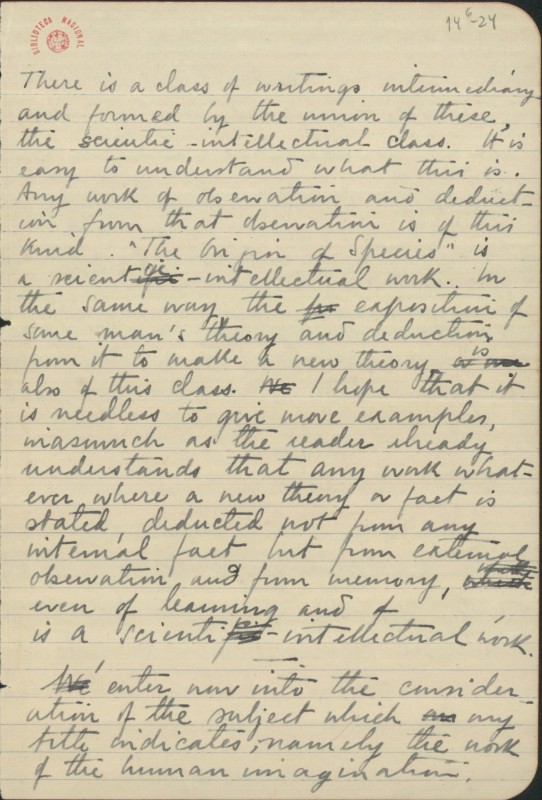 14⁶-24
BIBLIOTECA NACIONAL
There is a class of writings intermediary
and formed by the union of these,
the scientific-intellectual class. It is
easy to understand what this is.
Any work of observation and deduct-
ion from that observation is of this
kind. "The Origin of Species" is
a scientific-intellectual work. In
the same way the exposition of
some man's theory and deduction
from it to make a new theory, is
also of this class. I hope that it
is needless to give more examples,
inasmuch as the reader already
understands that any work what-
ever, where a new theory or fact is
stated, deducted not from any
internal fact but from external
observation and from memory,
even of learning and of
is a scientific-intellectual work.
We enter now into the consider-
ation of the subject which my
title indicates, namely the work
of the human imagination.